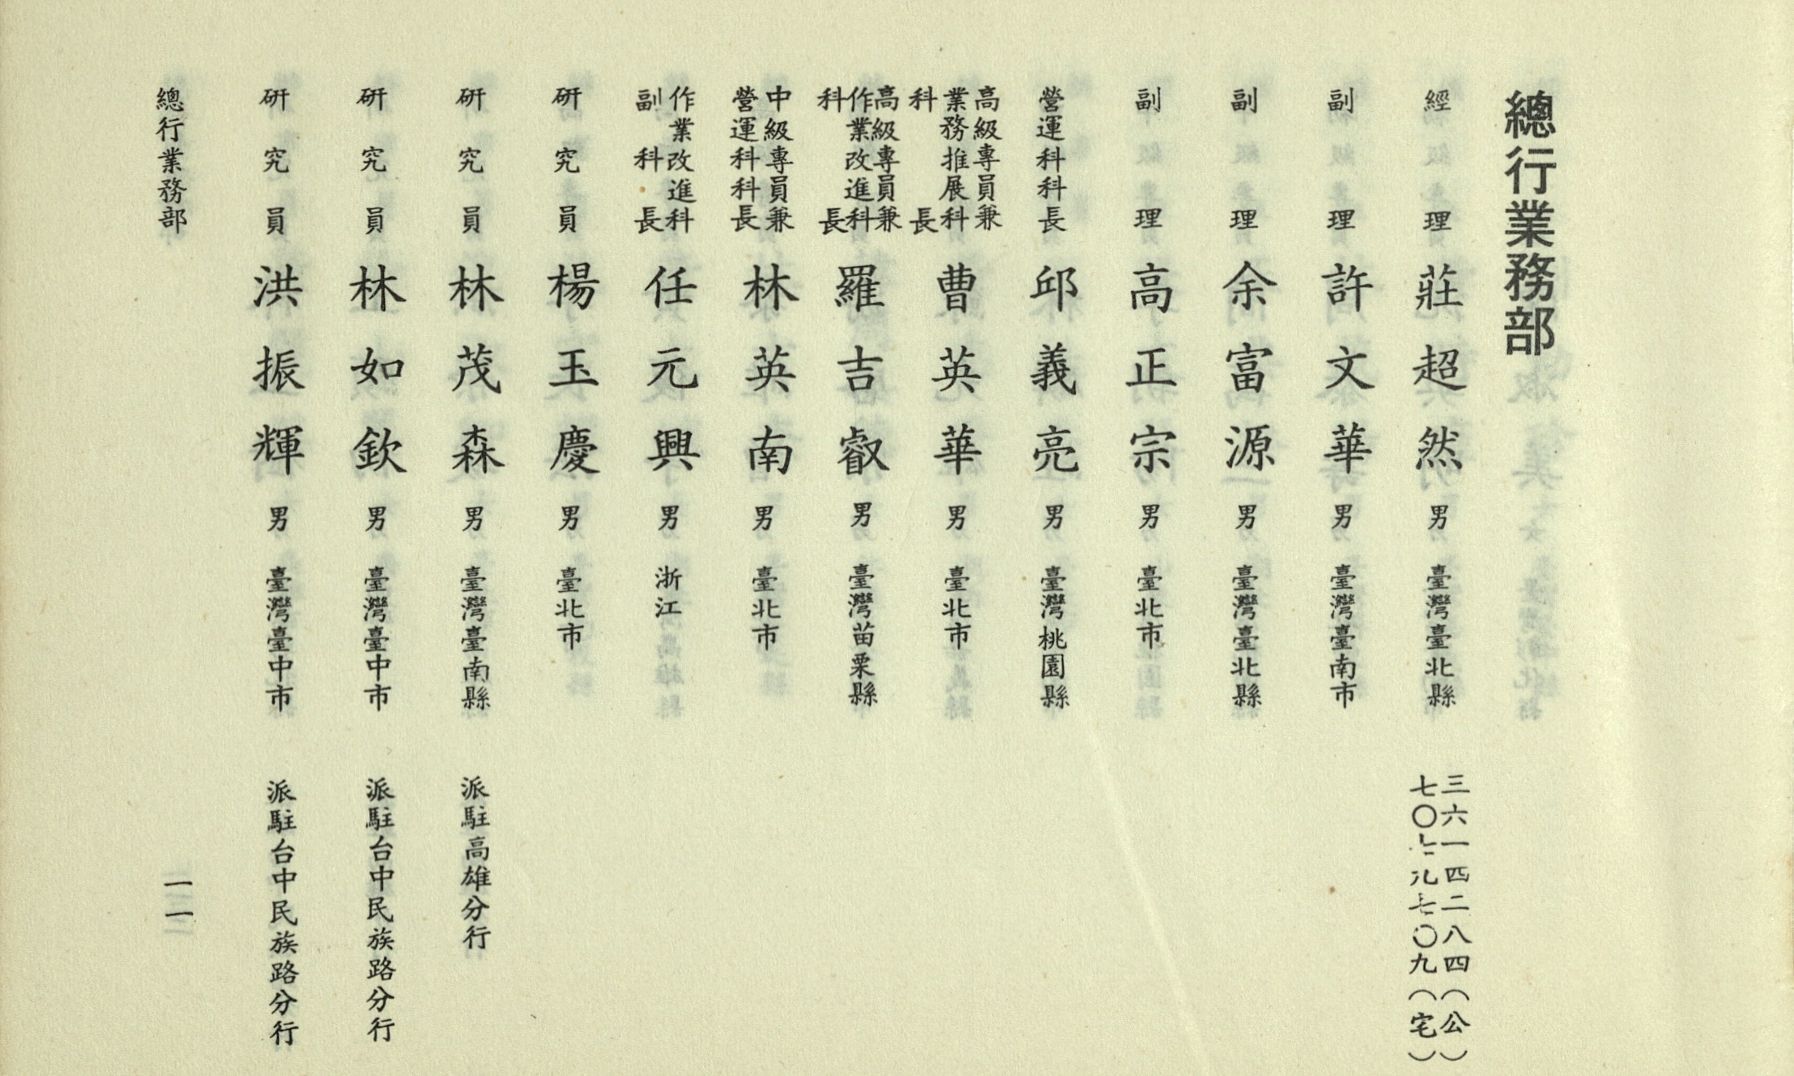 總行業務部
經理 莊超然 男 臺灣臺北縣 三六一四二八四(公) 七〇七九七〇九(宅)
副理 許文華 男 臺灣臺南市
副理 余富源 男 臺灣臺北縣
副理 高正宗 男 臺北市
營運科科長 邱義亮 男 臺灣桃園縣
高級專員兼業務推展科科長 曹英華 男 臺北市
高級專員兼作業改進科科長 羅吉叡 男 臺灣苗栗縣
中級專員兼營運科科長 林英南 男 臺北市
作業改進科副科長 任元興 男 浙江
研究員 楊玉慶 男 臺北市
研究員 林茂森 男 臺灣臺南縣 派駐高雄分行
研究員 林如欽 男 臺灣臺中市 派駐台中民族路分行
研究員 洪振輝 男 臺灣臺中市 派駐台中民族路分行
總行業務部 一一